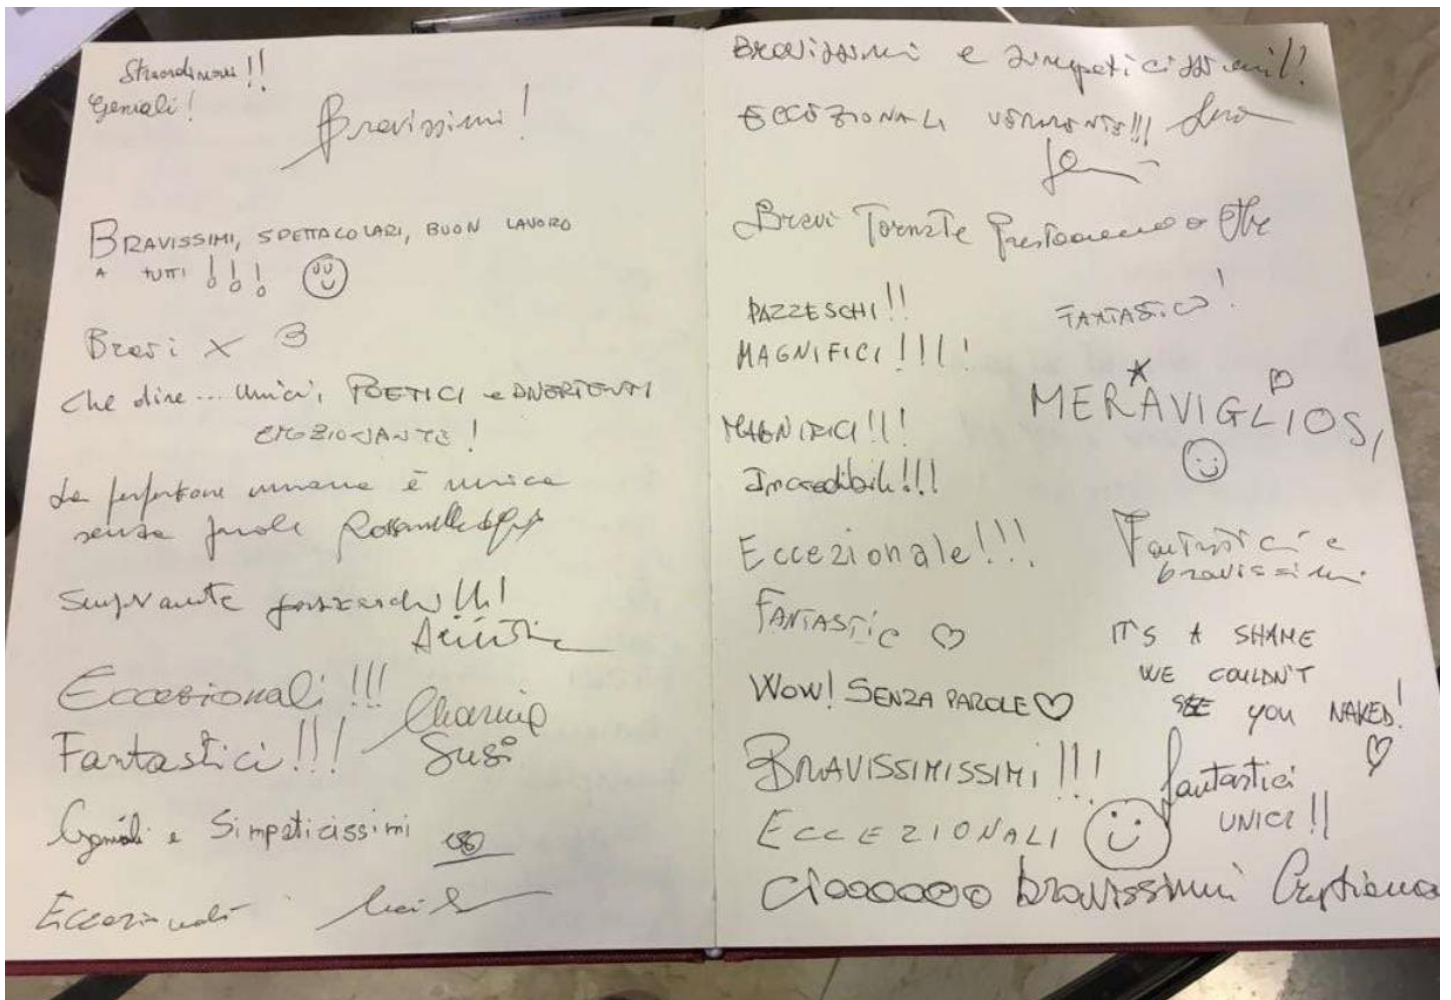 Straordinari!!
Geniali!
Bravissimi!
BRAVISSIMI, SPETTACOLARI, BUON LAVORO
A TUTTI !!!
Bravi X 3
Che dire... Unici, POETICI e DIVERTENTI
EMOZIONANTE!
La perfezione umana è unica
senza parole
!!!
Eccezionali!!!
Fantastici!!!
Susi
Geniali e Simpaticissimi
Eccezionali
Bravissimi e simpaticissimi!!
ECCEZIONALI VERAMENTE!!!
Bravi Tornate Prestooooo
PAZZESCHI!!
MAGNIFICI!!!!
FANTASTICO!
MERAVIGLIOSI
MAGNIFICI!!!
Incredibili!!!
Eccezionale!!!
Fantastici e
bravissimi
FANTASTIC ♡
IT'S A SHAME
WE COULDN'T
SEE YOU NAKED!
♡
WOW! SENZA PAROLE ♡
BRAVISSIMISSIMI!!!
fantastici
UNICI!!
ECCEZIONALI
Ciaooooo bravissimi Cristiana